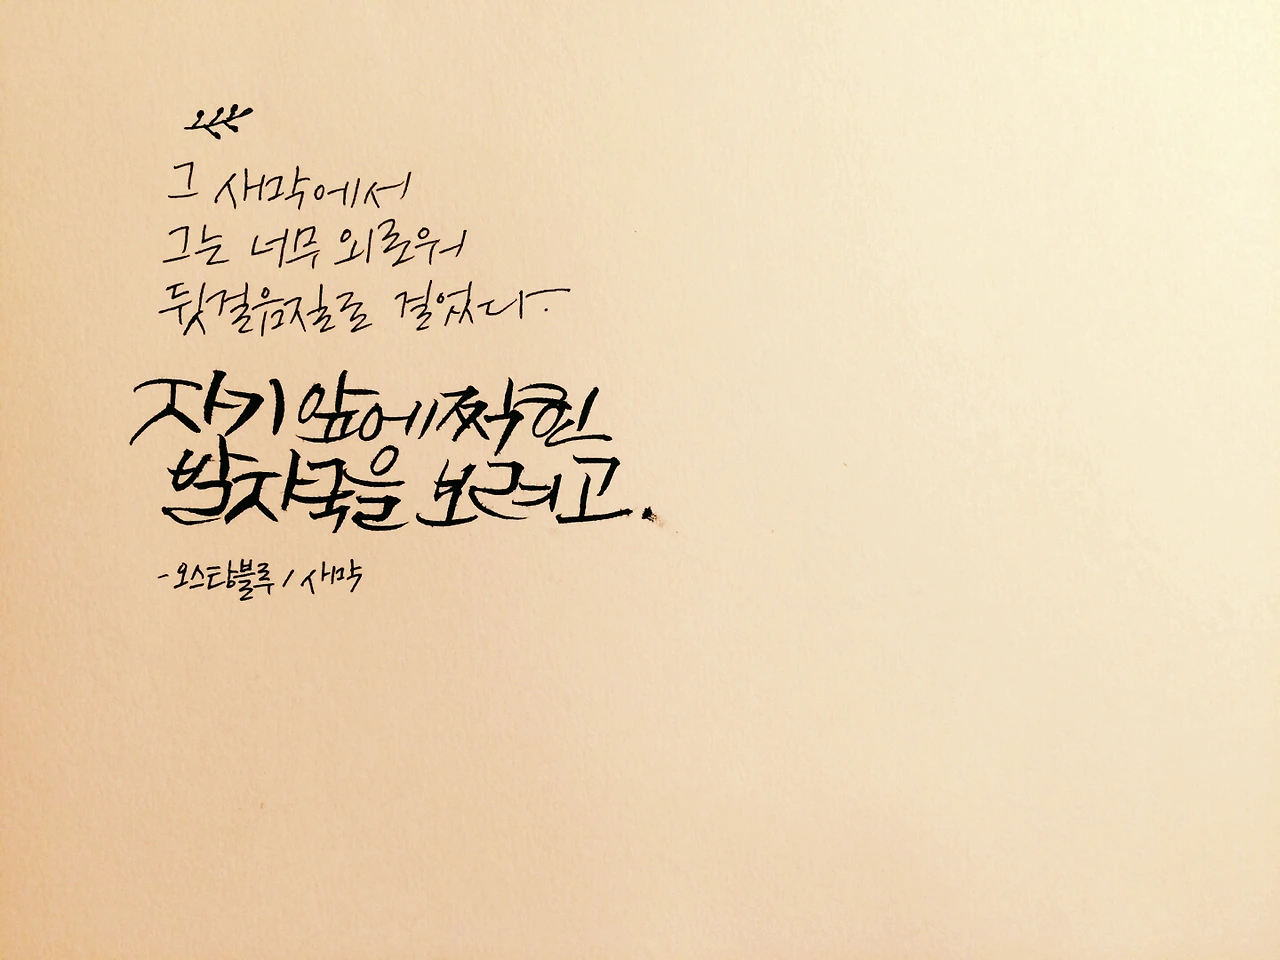 그 새막에서
그는 너무 외로워
뒷걸음질로 걸었다.
자기 앞에 찍힌
발자국을 보려고.
-오스탕블루 / 새막